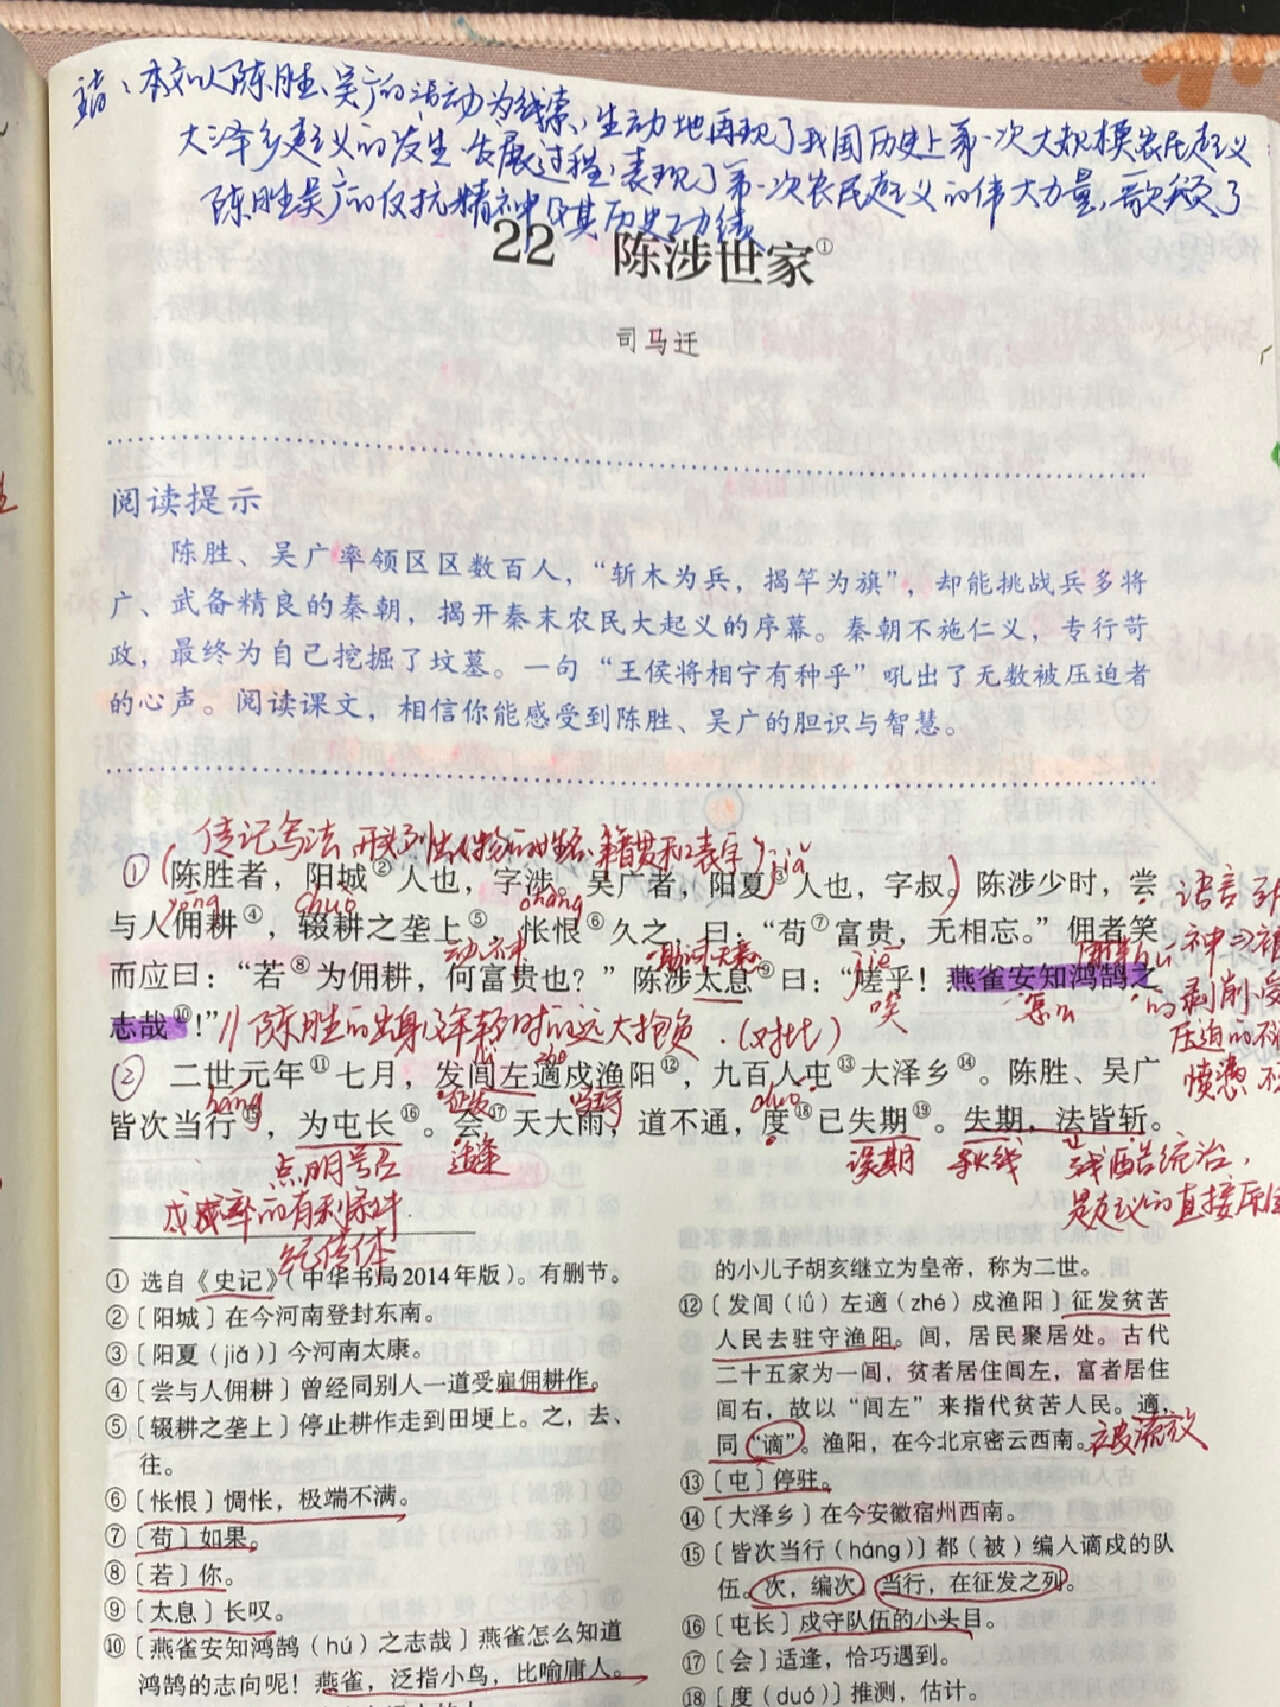 本文以陈胜、吴广的活动为线索,生动地再现了我国历史上第一次大规模农民起义
大泽乡起义的发生、发展过程,表现了第一次农民起义的伟大力量,歌颂了
陈胜吴广的反抗精神及其历史功绩
22 陈涉世家①
司马迁
阅读提示
陈胜、吴广率领区区数百人,“斩木为兵,揭竿为旗”,却能挑战兵多将
广、武备精良的秦朝,揭开秦末农民大起义的序幕。秦朝不施仁义,专行苛
政,最终为自己挖掘了坟墓。一句“王侯将相宁有种乎”吼出了无数被压迫者
的心声。阅读课文,相信你能感受到陈胜、吴广的胆识与智慧。
传记写法 开头列出人物的姓名、籍贯和表字 jiǎ
① (陈胜者,阳城②人也,字涉。吴广者,阳夏③人也,字叔。) 陈涉少时,尝
yōng chuò chàng
与人佣耕④,辍耕之垄上⑤,怅恨⑥久之,曰:“苟⑦富贵,无相忘。”佣者笑
动、神 助词无意 jiē hú
而应曰:“若⑧为佣耕,何富贵也?”陈涉太息⑨曰:“嗟乎!燕雀安知鸿鹄之
唉 怎么
志哉⑩!”// 陈胜的出身及年轻时的远大抱负.(对比)
语言
神
的剥削,受
压迫的
愤懑
lǘ zhé
② 二世元年⑪七月,发闾左適戍渔阳⑫,九百人屯⑬大泽乡⑭。陈胜、吴广
háng 征发 duó
皆次当行⑮,为屯长⑯。会⑰天大雨,道不通,度⑱已失期⑲。失期,法皆斩。
点明号召 适逢 误期 导火线 残酷统治,
戍卒的有利条件. 是起义的直接原因
纪传体
① 选自《史记》(中华书局2014年版)。有删节。
②〔阳城〕在今河南登封东南。
③〔阳夏(jiǎ)〕今河南太康。
④〔尝与人佣耕〕曾经同别人一道受雇佣耕作。
⑤〔辍耕之垄上〕停止耕作走到田埂上。之,去、
往。
⑥〔怅恨〕惆怅,极端不满。
⑦〔苟〕如果。
⑧〔若〕你。
⑨〔太息〕长叹。
⑩〔燕雀安知鸿鹄(hú)之志哉〕燕雀怎么知道
鸿鹄的志向呢!燕雀,泛指小鸟,比喻庸人。
的小儿子胡亥继立为皇帝,称为二世。
⑫〔发闾(lǘ)左適(zhé)戍渔阳〕征发贫苦
人民去驻守渔阳。闾,居民聚居处。古代
二十五家为一闾,贫者居住闾左,富者居住
闾右,故以“闾左”来指代贫苦人民。適,
同“谪”。渔阳,在今北京密云西南。被流放
⑬〔屯〕停驻。
⑭〔大泽乡〕在今安徽宿州西南。
⑮〔皆次当行(háng)〕都(被)编入谪戍的队
伍。次,编次。当行,在征发之列。
⑯〔屯长〕戍守队伍的小头目。
⑰〔会〕适逢,恰巧遇到。
⑱〔度(duó)〕推测,估计。